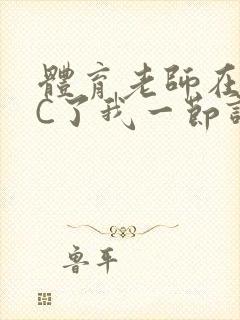 體育老師在
C了我一節
魯平